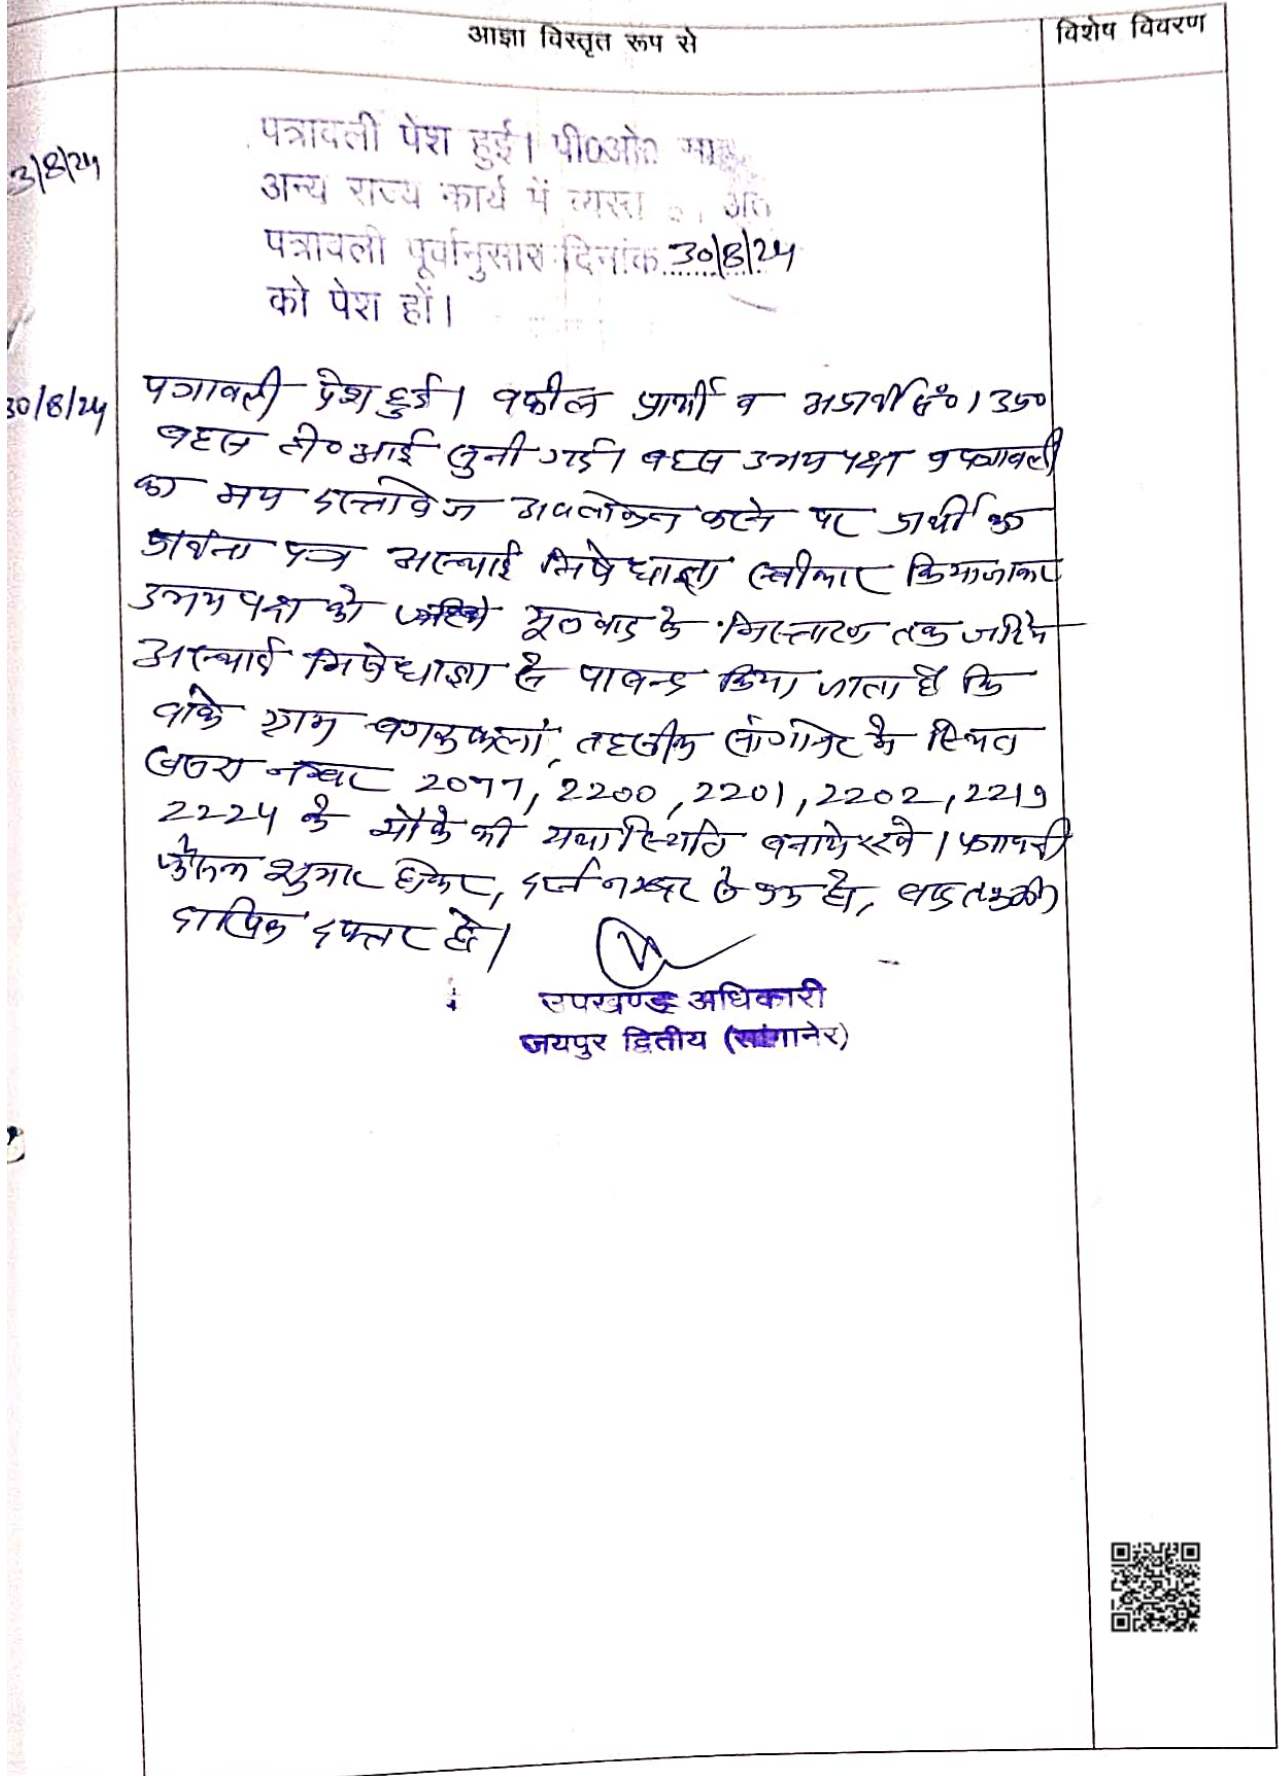 आज्ञा विस्तृत रूप से
विशेष विवरण
3/8/24
पत्रावली पेश हुई। पी०ओ०
अन्य राज्य कार्य में व्यस्त अत
पत्रावली पूर्वानुसार दिनांक 30/8/24
को पेश हों।
30/8/24
पत्रावली पेश हुई। वकील प्रार्थी व अप्रार्थी सं० 1 उप०
बहस टी०आई सुनी गई। बहस उभयपक्ष व पत्रावली
का मय दस्तावेज अवलोकन करने पर प्रार्थी का
प्रार्थना पत्र अस्थाई निषेधाज्ञा स्वीकार किया जाकर
उभयपक्ष को मूलवाद के निस्तारण तक जरिये
अस्थाई निषेधाज्ञा से पाबन्द किया जाता है कि
वाके ग्राम बगरुकलां, तहसील सांगानेर के स्थित
खसरा नम्बर 2077, 2200, 2201, 2202, 2219
2224 के मौके की यथास्थिति बनाये रखे। पत्रावली
फैसल शुमार होकर, दर्ज नम्बर से कम हो, बाद तकमील
दाखिल दफ्तर हो।
उपखण्ड अधिकारी
जयपुर द्वितीय (सांगानेर)